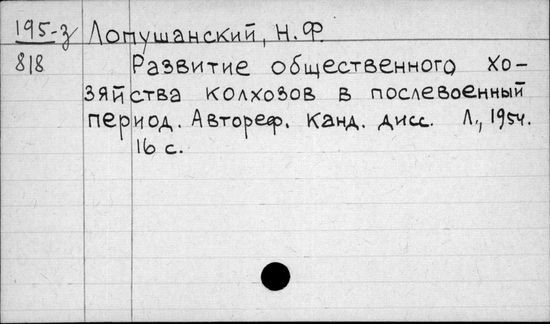 195-з Лопушанский, Н.Ф.
818 Развитие общественного хо-
зяйства колхозов в послевоенный
период. Автореф. канд. дисс. Л., 1954.
16 с.